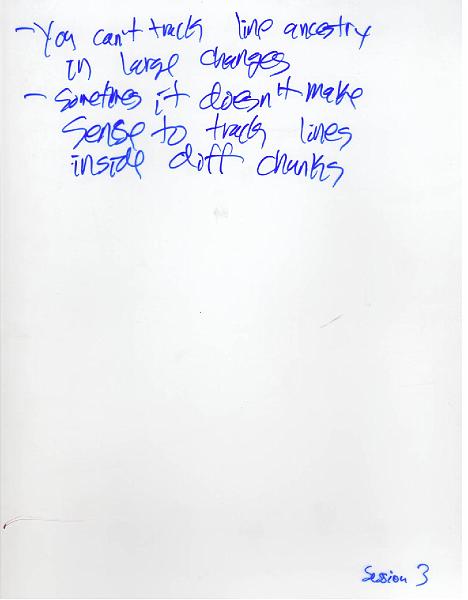 - You can't track line ancestry
in large changes
- Sometimes it doesn't make
sense to track lines
inside diff chunks
Session 3